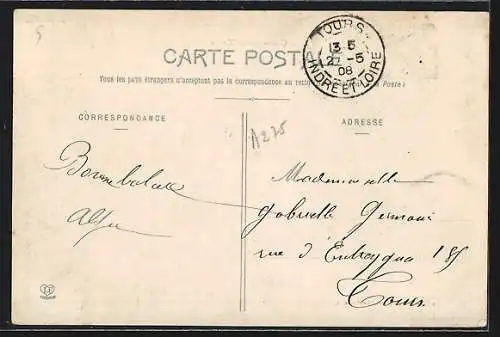 TOURS
13 5
22 - 5
08
INDRE-ET-LOIRE
CARTE POSTALE
Tous les pays étrangers n'acceptent pas la correspondance au recto
Poste)
CORRESPONDANCE
ADRESSE
A275
Bonne balade
Mademoiselle
Gabrielle Germain
rue d'Entraygues 185
Tours